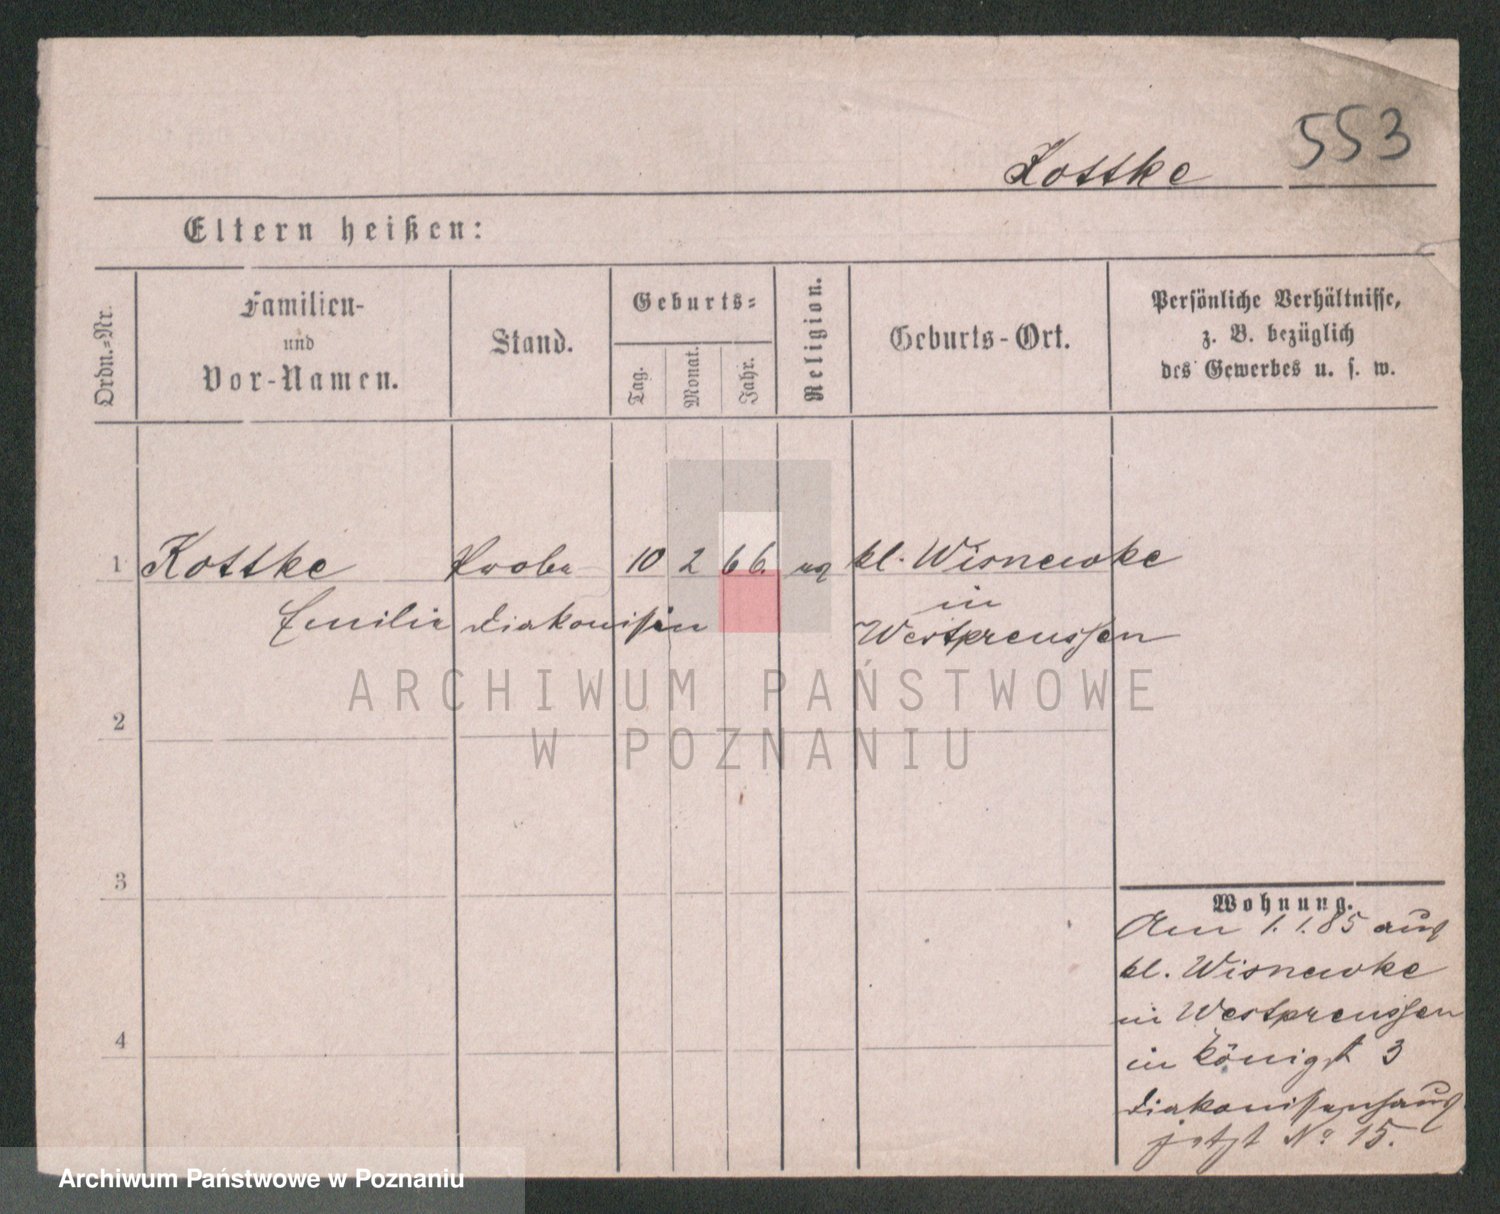 553
Kottke
Eltern heißen:
Ordn.-Nr.
Familien-
und
Vor-Namen.
Stand.
Geburts-
Tag.
Monat.
Jahr.
Religion.
Geburts-Ort.
Persönliche Verhältnisse,
z. B. bezüglich
des Gewerbes u. s. w.
1 Kottke Probe 10 2 66. ev kl. Wisnewke
Emilie Diakonissin in
Westpreussen
2
3
4
Wohnung.
Am 1.1.85 aus
kl. Wisnewke
in Westpreussen
in Königst 3
Diakonissenhaus
jetzt No 15.
ARCHIWUM PAŃSTWOWE
W POZNANIU
Archiwum Państwowe w Poznaniu